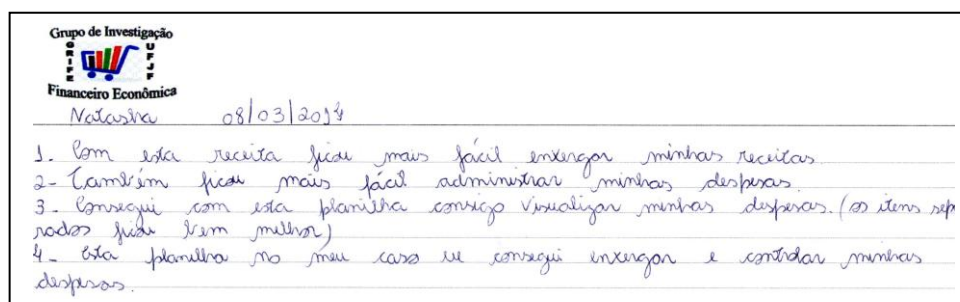 Grupo de Investigação
GRIFE UFJF
Financeiro Econômica
Natasha 08/03/2014
1. Com esta receita ficou mais fácil enxergar minhas receitas
2- Também ficou mais fácil administrar minhas despesas.
3- Consegui com esta planilha consigo visualizar minhas despesas. (os itens sepa
rados ficou bem melhor)
4- Esta planilha no meu caso eu consegui enxergar e controlar minhas
despesas.